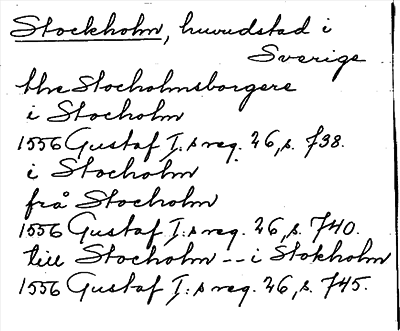 Stockholm, huvudstad i
Sverige
thr Stocholmsborgere
i Stocholm
1556 Gustaf I:s reg. 26, s. 738.
i Stocholm
frå Stocholm
1556 Gustaf I:s reg. 26, s. 740.
till Stocholm -- i Stokholm
1556 Gustaf I:s reg. 26, s. 745.